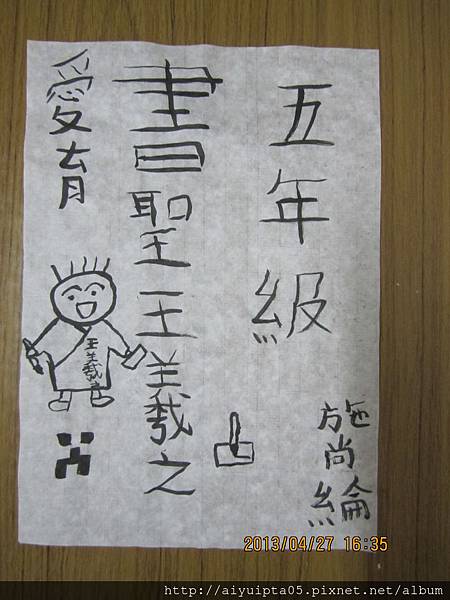 五年級
施尚綸
書聖王羲之
愛育
王羲之
2013/04/27 16:35
http://aiyuipta05.pixnet.net/album